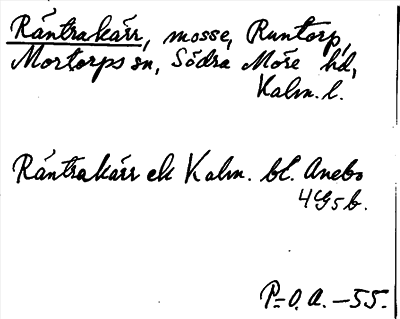 Räntrakärr, mosse, Runtorp,
Mortorps sn, Södra Möre hd,
Kalm. l.
Räntrakärr ek Kalm. bl. Anebo
4G5b.
P-O.A. -55.